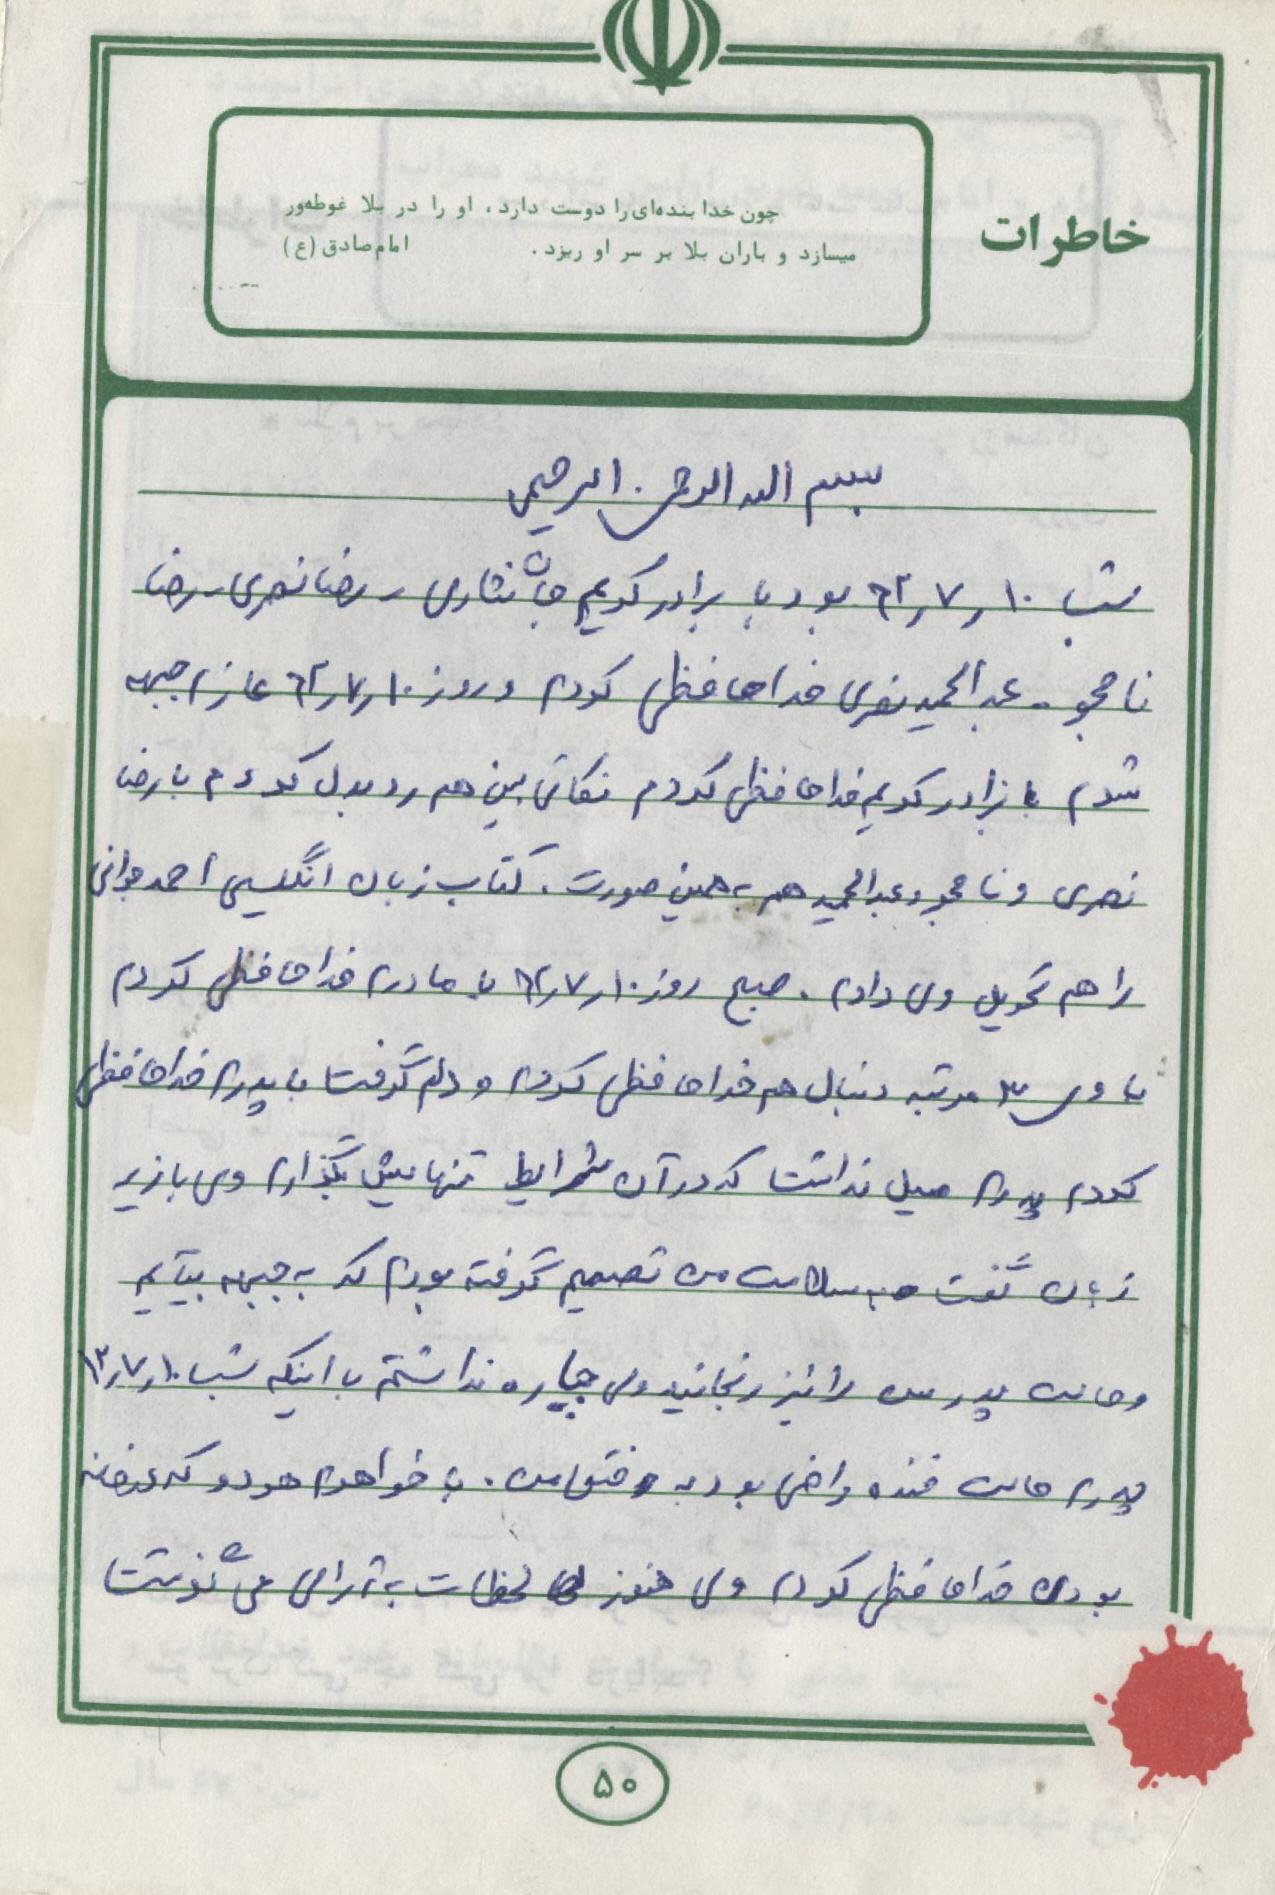 خاطرات
چون خدا بنده‌ای را دوست دارد، او را در بلا غوطه‌ور
میسازد و باران بلا بر سر او ریزد. امام صادق (ع)
بسم الله الرحمن الرحیم
شب ۱۰ر۷ر۶۲ بود با برادر کریم جان نثاری - رضا نصری - رضا
نامجو - عبدالحمید نصری خداحافظی کردم و روز ۱۰ر۷ر۶۲ عازم جبهه
شدم با برادر کریم خداحافظی کردم نکاتی بین هم رد و بدل کردم با رضا
نصری و نامجو و عبدالحمید هم به همین صورت. کتاب زبان انگلیسی احمد جوانی
را هم تحویل وی دادم. صبح روز ۱۰ر۷ر۶۲ با مادرم خداحافظی کردم
با وی ۳ مرتبه دنبال هم خداحافظی کردم و دلم گرفت با پدرم خداحافظی
کردم پدرم میل نداشت که در آن شرایط تنهایش بگذارم ولی با زیر
زبان گفت به سلامت من تصمیم گرفته بودم که به جبهه بیایم
و حالت پدر من را نیز رنجانید ولی چاره نداشتم با اینکه شب ۱۰ر۷ر۶۲
پدرم حالت خنده راضی بود به رفتن من. با خواهرم هر دو که در خانه
بودن خداحافظی کردم ولی هنوز لحظات به آرامی می گذشت
۵۰